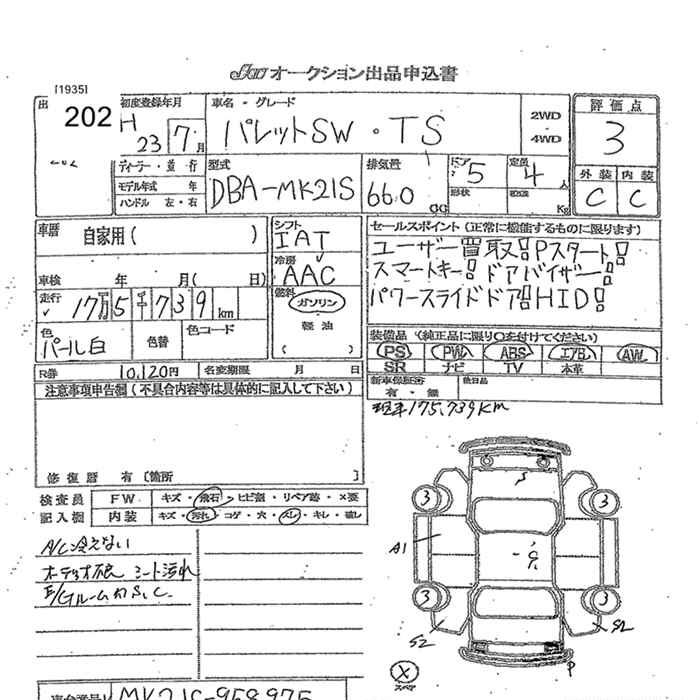 JAA オークション出品申込書
[1935]
出
202
初度登録年月
H 23 7月
車名・グレード
パレットSW・TS
2WD
4WD
評価点
3
外装 内装
C C
ディーラー・並行
モデル年式 年
ハンドル 左・右
型式
DBA-MK21S
排気量
660
CC
ドア
5
形状
定員
4人
Kg
車歴
自家用( )
車検 年 月( 日)
走行
17万5千739km
色
パール白
色替
色コード
シフト
IAT
冷房
AAC
燃料
ガソリン
軽油
( )
セールスポイント(正常に機能するものに限ります)
ユーザー買取!Pスタート!
スマートキー!ドアバイザー!
パワースライドドア!HID!
装備品(純正品に限り○を付けてください)
PS PW ABS エアB AW
SR ナビ TV 本革
R券 10,120円 名変期限 月 日
新車保証書
有・無
後日品
注意事項申告欄(不具合内容等は具体的に記入して下さい)
現車175,739KM
修復歴 有〔箇所 〕
検査員
記入欄
FW キズ・飛石・ヒビ割・リペア跡・×要
内装 キズ・汚れ・コゲ・穴・スレ・キレ・破し
A/C冷えない
シート汚れ
E/Gルーム
S.C.
3 3
S
A1
3 3
S2 S2
P
スペア
MK21S-958975